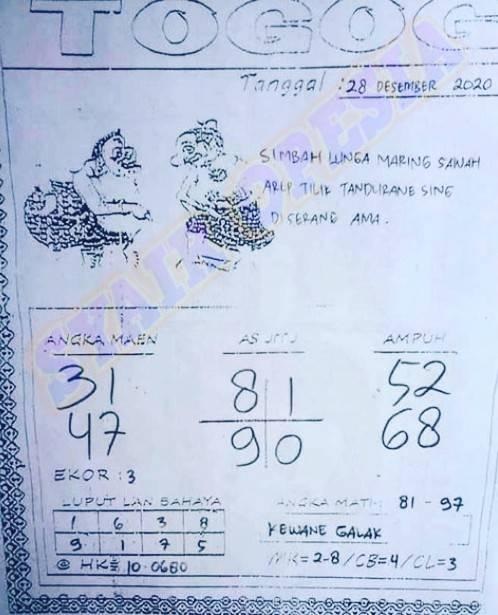 TOGOG
Tanggal : 28 DESEMBER 2020
SIMBAH LUNGA MARING SAWAH
AREP TILIK TANDURANE SING
DI SERANG AMA.
ANGKA MAEN
AS JITU
AMPUH
31
8 1
52
47
9 0
68
EKOR : 3
LUPUT LAN BAHAYA
ANGKA MATI 81 - 97
1 6 3 8
KEWANE GALAK
9 1 7 5
@ HK = 10.0680
MK = 2-8 / CB = 4 / CL = 3